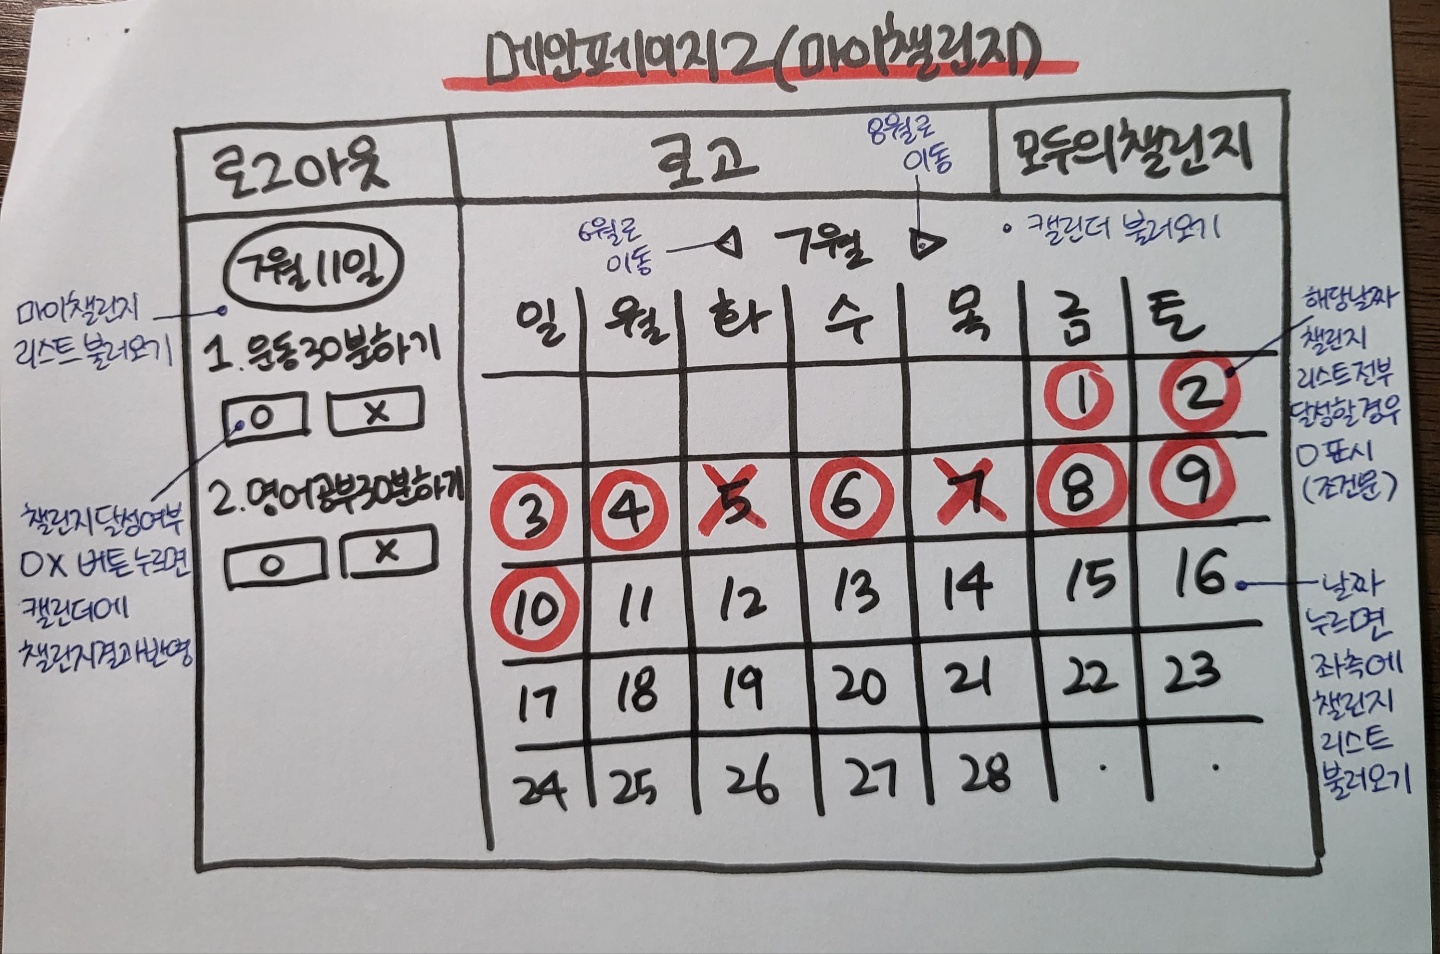 메인페이지2(마이챌린지)
로그아웃
로고
8월로
이동
모두의챌린지
7월 11일
6월로
이동
7월
• 캘린더 불러오기
마이챌린지
리스트 불러오기
1. 운동30분하기
O X
2. 영어공부30분하기
O X
챌린지달성여부
OX 버튼누르면
캘린더에
챌린지결과반영
일 월 화 수 목 금 토
1 2
3 4 5 6 7 8 9
10 11 12 13 14 15 16
17 18 19 20 21 22 23
24 25 26 27 28 . .
해당날짜
챌린지
리스트전부
달성할경우
O 표시
(조건문)
날짜
누르면
좌측에
챌린지
리스트
불러오기